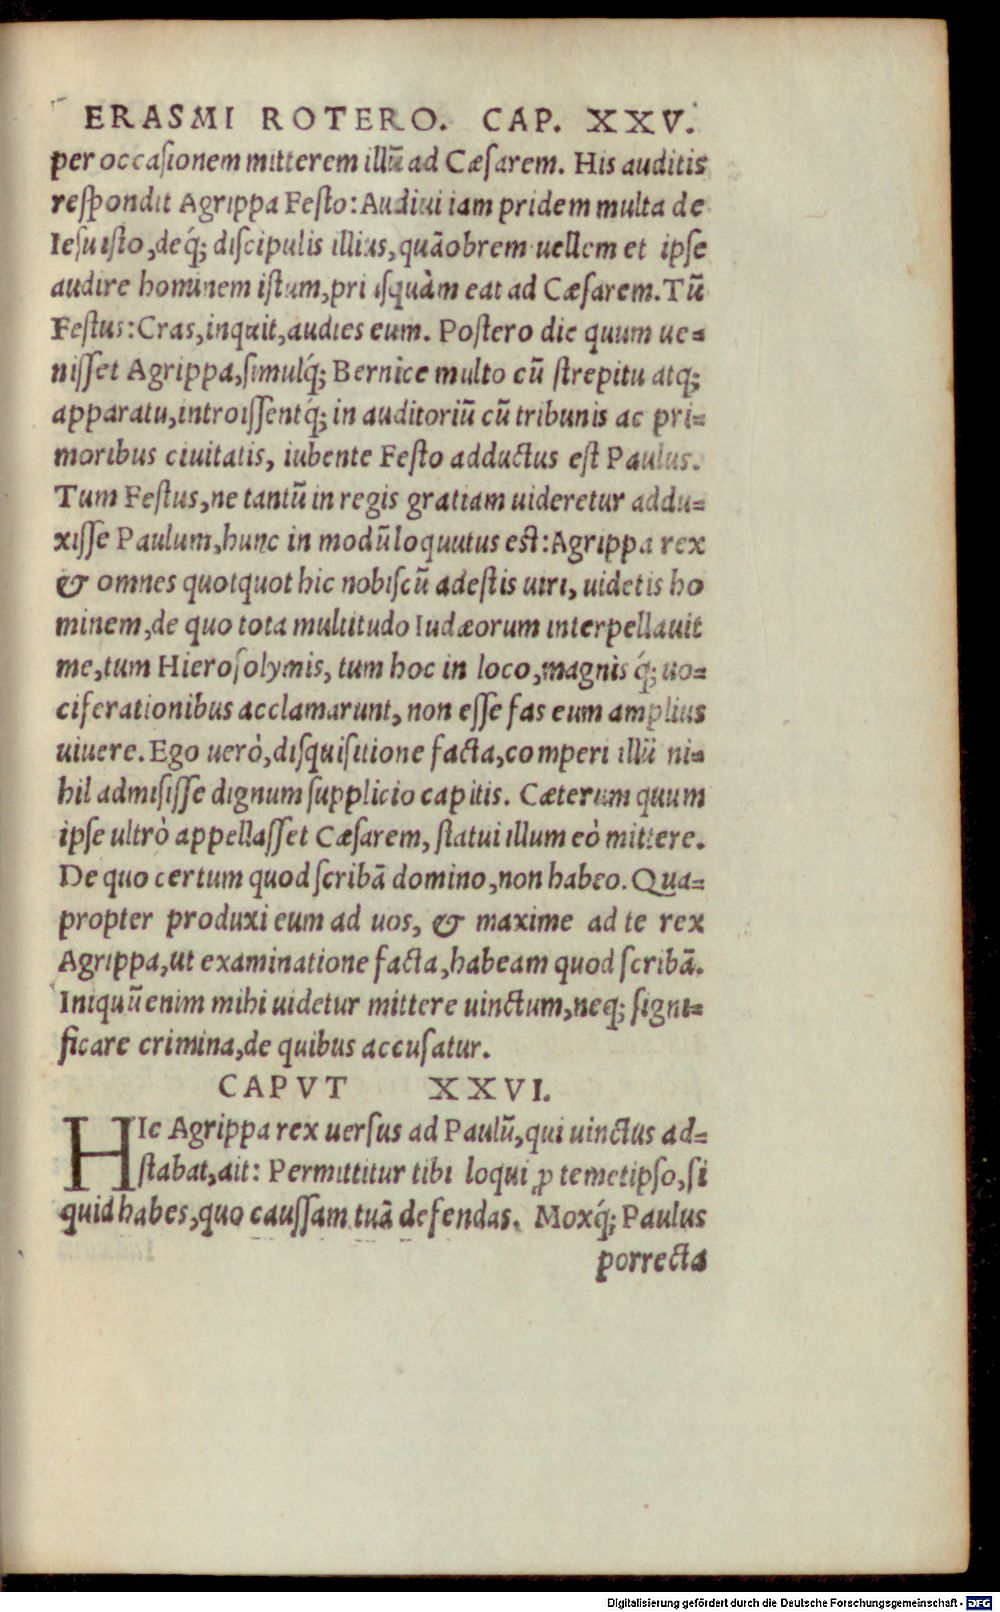 ERASMI ROTERO. CAP. XXV.
per occaſionem mitterem illũ ad Cæſarem. His auditis
reſpondit Agrippa Feſto: Audiui iam pridem multa de
Ieſu iſto, deq́; diſcipulis illius, quãobrem uellem et ipſe
audire hominem iſtum, priuſquàm eat ad Cæſarem. Tũ
Feſtus: Cras, inquit, audies eum. Poſtero die quum ue=
niſſet Agrippa, ſimulq́; Bernice multo cũ ſtrepitu atq;
apparatu, introiſſentq́; in auditoriũ cũ tribunis ac pri=
moribus ciuitatis, iubente Feſto adductus eſt Paulus.
Tum Feſtus, ne tantũ in regis gratiam uideretur addu=
xiſſe Paulum, hunc in modũ loquutus eſt: Agrippa rex
& omnes quotquot hic nobiſcũ adeſtis uiri, uidetis ho
minem, de quo tota multitudo Iudæorum interpellauit
me, tum Hieroſolymis, tum hoc in loco, magnisq́; uo=
ciferationibus acclamarunt, non eſſe fas eum amplius
uiuere. Ego uerò, diſquiſitione facta, comperi illũ ni=
hil admiſiſſe dignum ſupplicio capitis. Cæterum quum
ipſe ultrò appellaſſet Cæſarem, ſtatui illum eò mittere.
De quo certum quod ſcribã domino, non habeo. Qua=
propter produxi eum ad uos, & maxime ad te rex
Agrippa, ut examinatione facta, habeam quod ſcribã.
Iniquũ enim mihi uidetur mittere uinctum, neq; ſigni=
ficare crimina, de quibus accuſatur.
CAPVT XXVI.
HIc Agrippa rex uerſus ad Paulũ, qui uinctus ad=
ſtabat, ait: Permittitur tibi loqui ꝓ temetipſo, ſi
quid habes, quo cauſſam tuã defendas. Moxq́; Paulus
porrecta
Digitalisierung gefördert durch die Deutsche Forschungsgemeinschaft - DFG